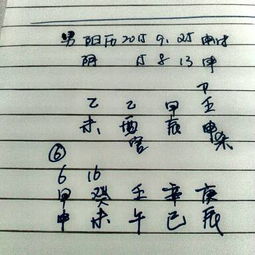 男 阳历 2015 9. 25 申时
阴 15 8 13 申
卩
乙 乙 甲 壬
未 酉 辰 申 杀
官
⑥
6 16
甲 癸 壬 辛 庚
申 未 午 巳 辰